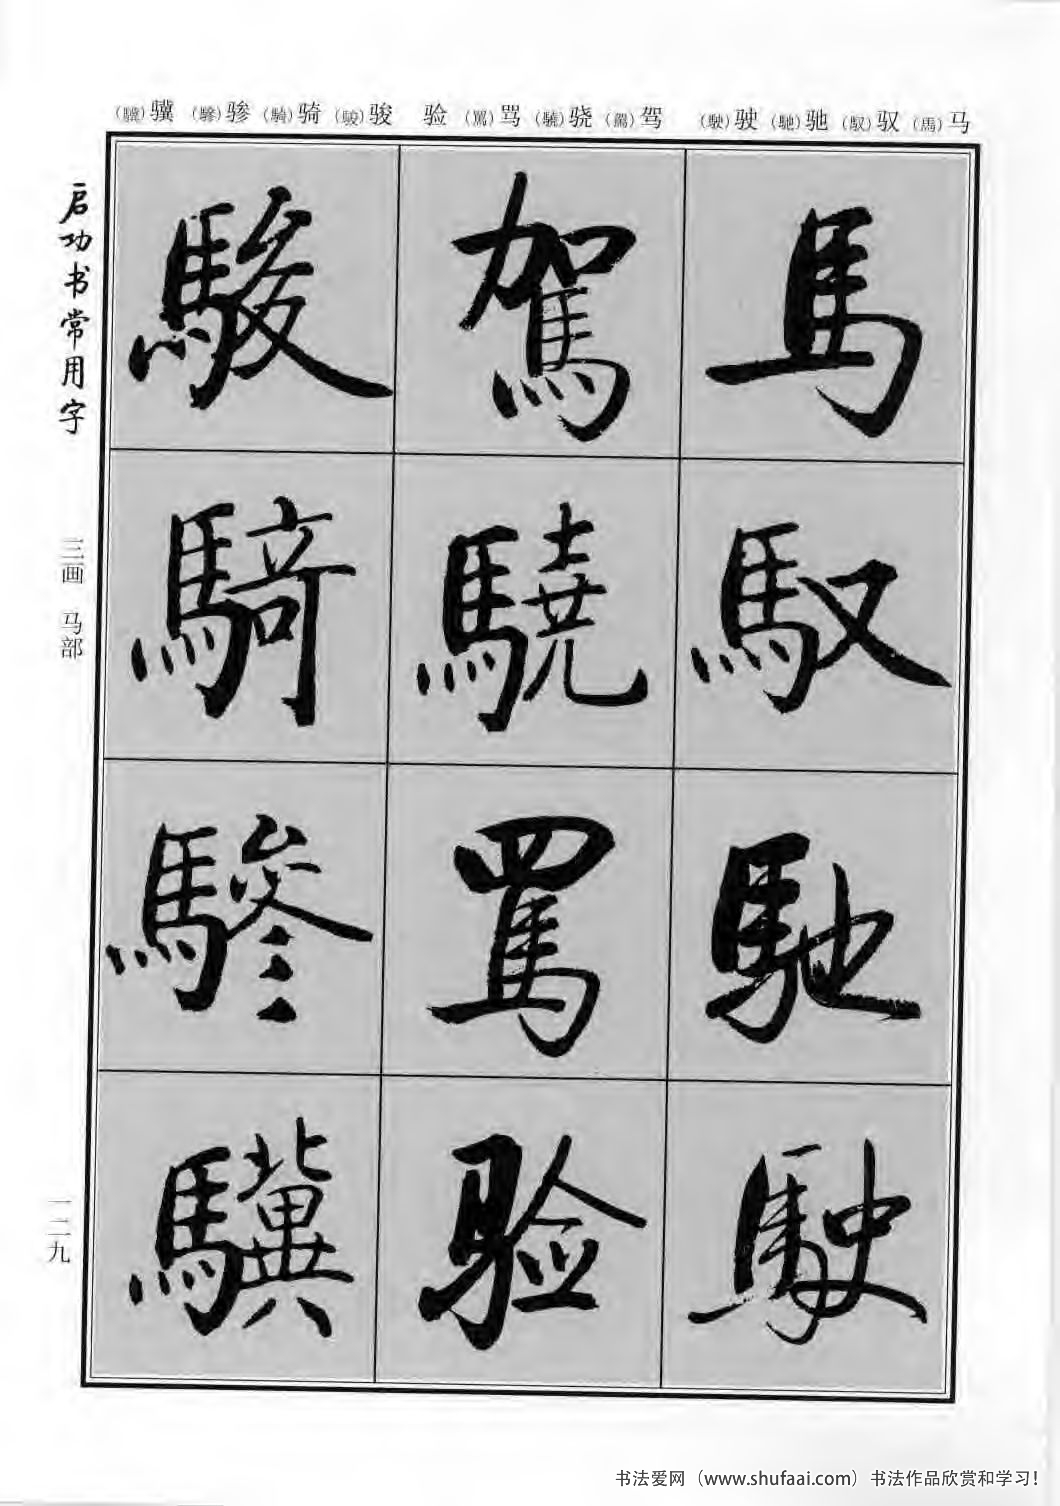 马(馬)驭(馭)驰(馳)驶(駛)
驾(駕)骁(驍)骂(罵)验
骏(駿)骑(騎)骖(驂)骥(驥)
馬
馭
馳
駛
駕
驍
罵
验
駿
騎
驂
驥
启功书常用字
三画 马部
一二九
书法爱网(www.shufaai.com)书法作品欣赏和学习!